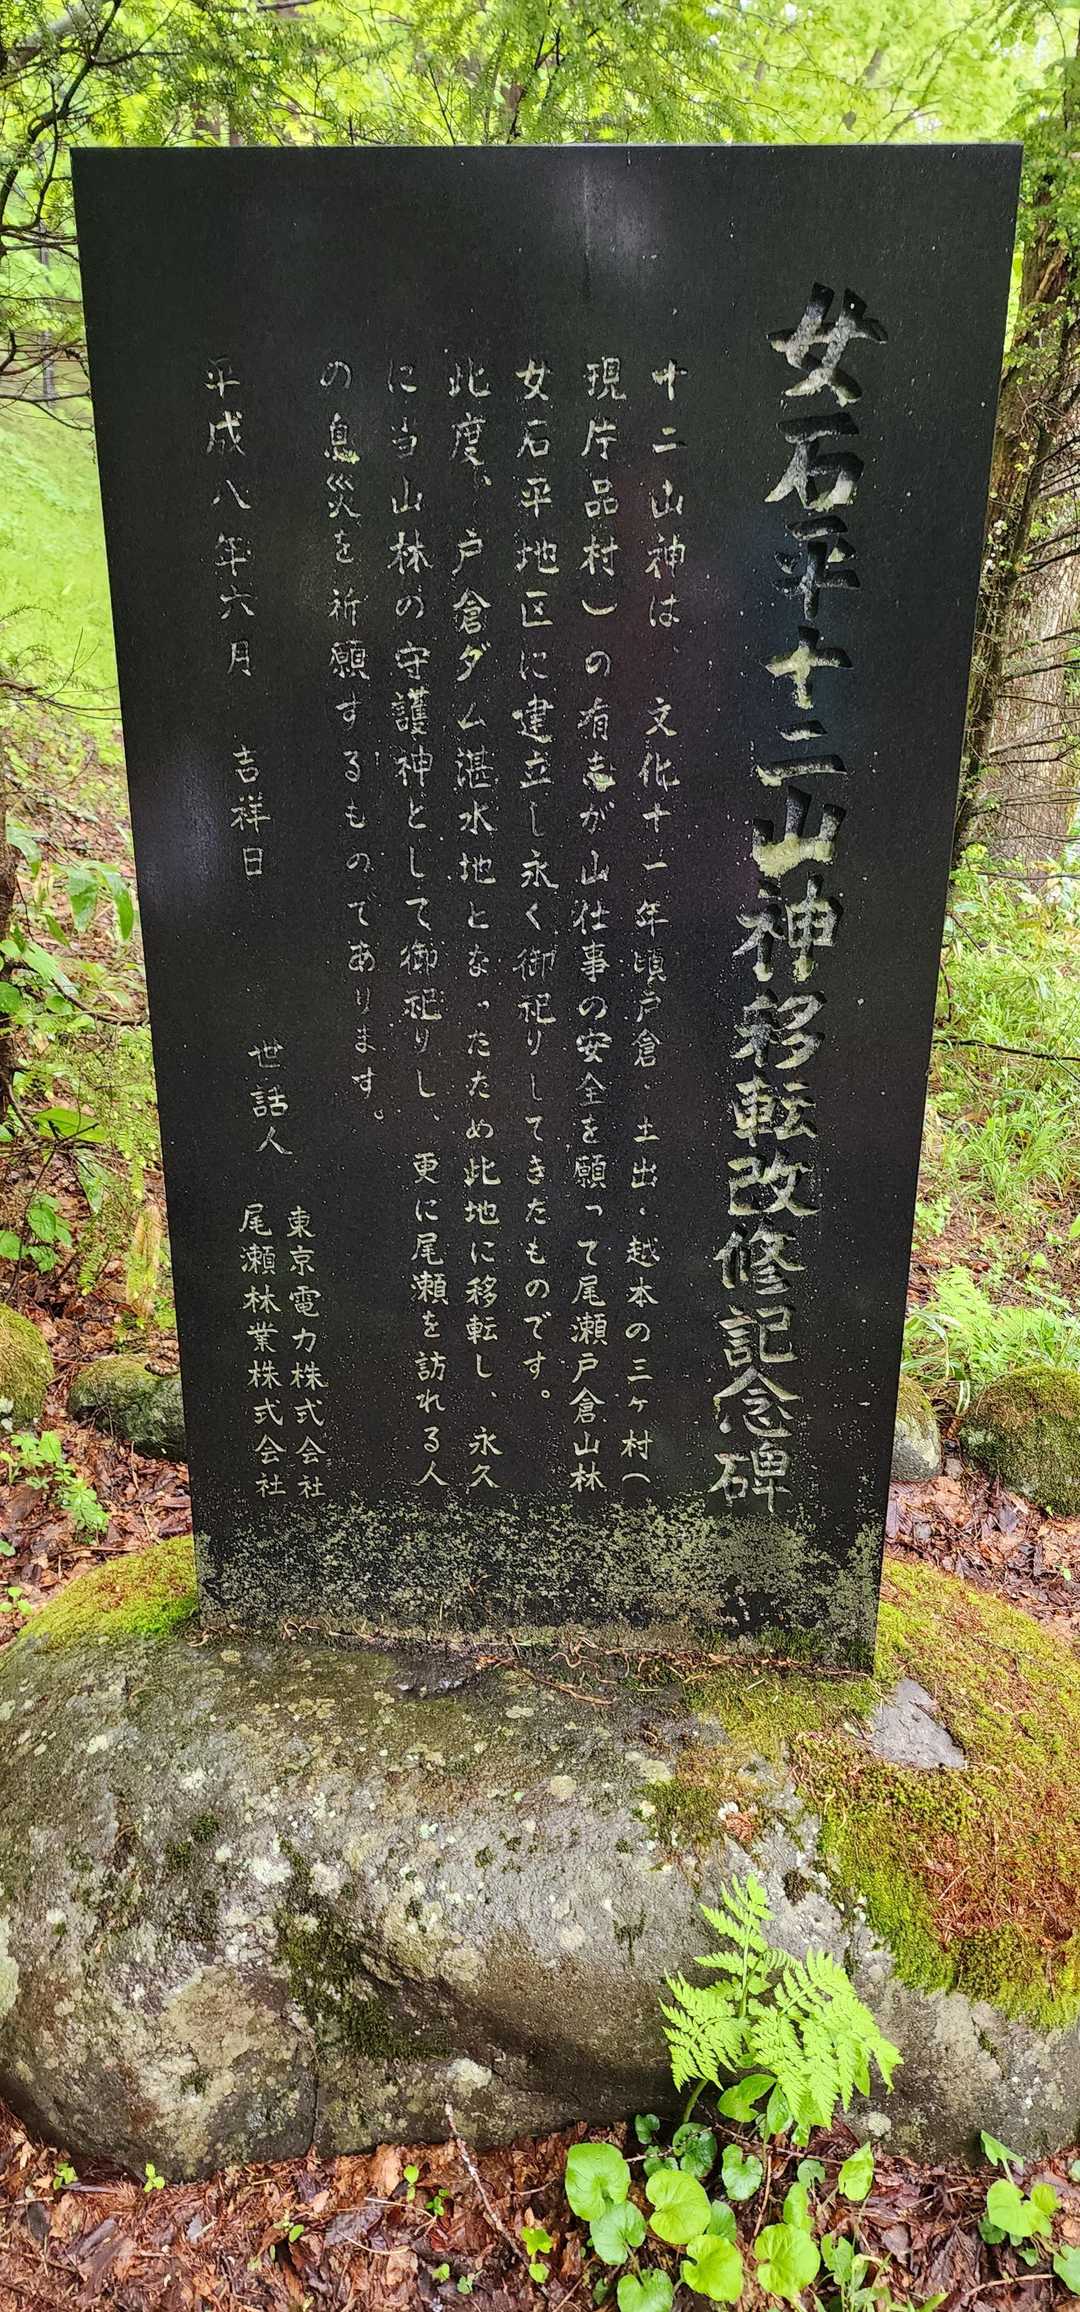 女石平十二山神移転改修記念碑
十二山神は、文化十一年頃戸倉、土出、越本の三ヶ村(
現片品村)の有志が山仕事の安全を願って尾瀬戸倉山林
女石平地区に建立し永く御祀りしてきたものです。
此度、戸倉ダム湛水地となったため此地に移転し、永久
に当山林の守護神として御祀りし、更に尾瀬を訪れる人
の息災を祈願するものであります。
平成八年六月 吉祥日
世話人 東京電力株式会社
尾瀬林業株式会社